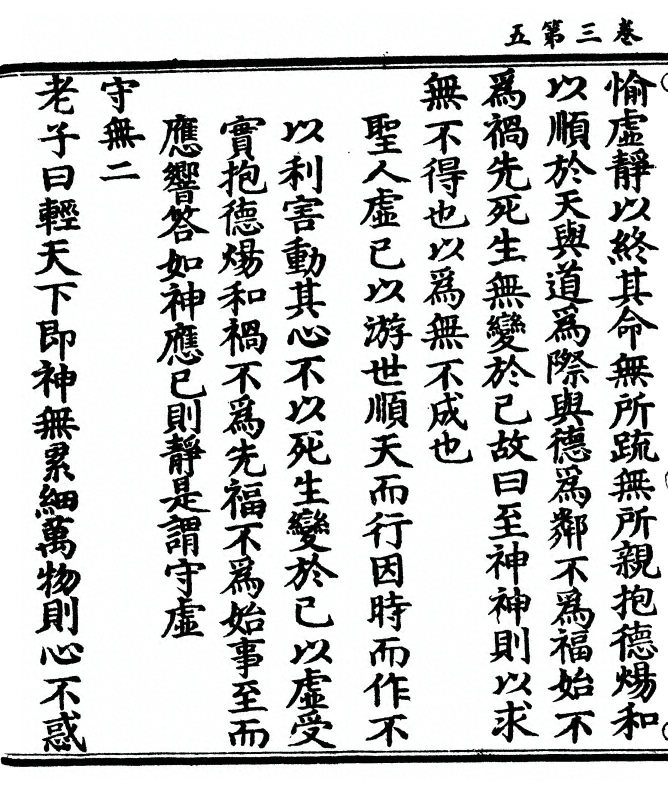 卷三第五
愉虛靜以終其命無所疏無所親抱德煬和
以順於天與道爲際與德爲鄰不爲福始不
爲禍先死生無變於己故曰至神神則以求
無不得也以爲無不成也
聖人虛己以游世順天而行因時而作不
以利害動其心不以死生變於己以虛受
實抱德煬和禍不爲先福不爲始事至而
應響答如神應已則靜是謂守虛
守無二
老子曰輕天下即神無累細萬物則心不惑